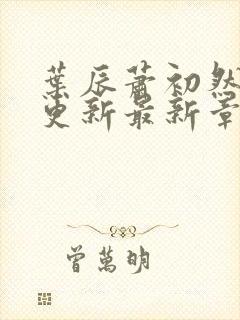 葉辰蕭初然
更新最新章
曾萬明